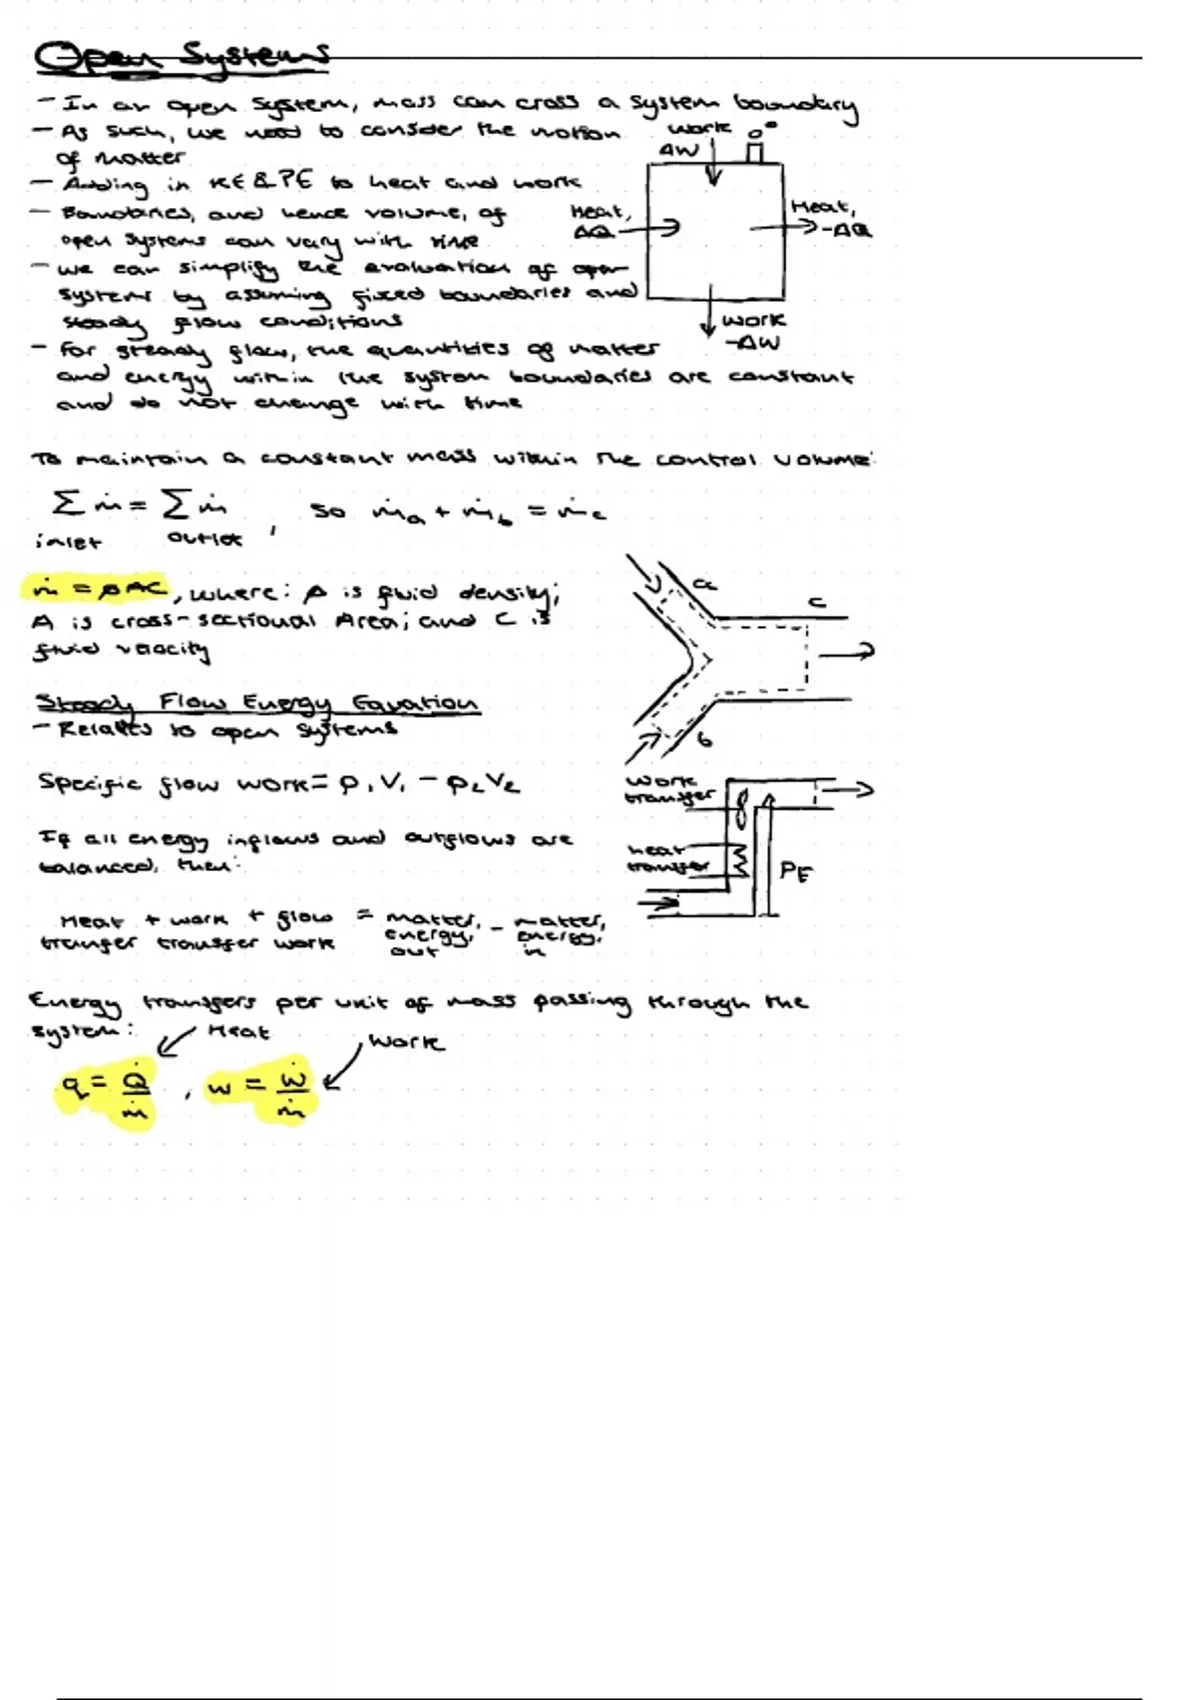 Open Systems
- In an open system, mass can cross a system boundary
- As such, we need to consider the motion
of matter
- Adding in KE & PE to heat and work
- Boundaries, and hence volume, of
open systems can vary with time
- we can simplify the evaluation of open
systems by assuming fixed boundaries and
steady flow conditions
- For steady flow, the quantities of matter
and energy within the system boundaries are constant
and do not change with time
work
ΔW
Heat,
ΔQ
Heat,
-ΔQ
work
-ΔW
To maintain a constant mass within the control volume:
Σ ṁ = Σ ṁ , so ṁa + ṁb = ṁc
inlet outlet
ṁ = ρAC, where: ρ is fluid density;
A is cross-sectional Area; and C is
fluid velocity
a
c
b
Steady Flow Energy Equation
- Relates to open systems
Specific flow work = P₁V₁ - P₂V₂
If all energy inflows and outflows are
balanced, then:
work
transfer
heat
transfer
PE
Heat + work + flow = matter, - matter,
transfer transfer work energy, energy,
out in
Energy transfers per unit of mass passing through the
system:
Heat
Work
q = Q̇/ṁ , w = Ẇ/ṁ